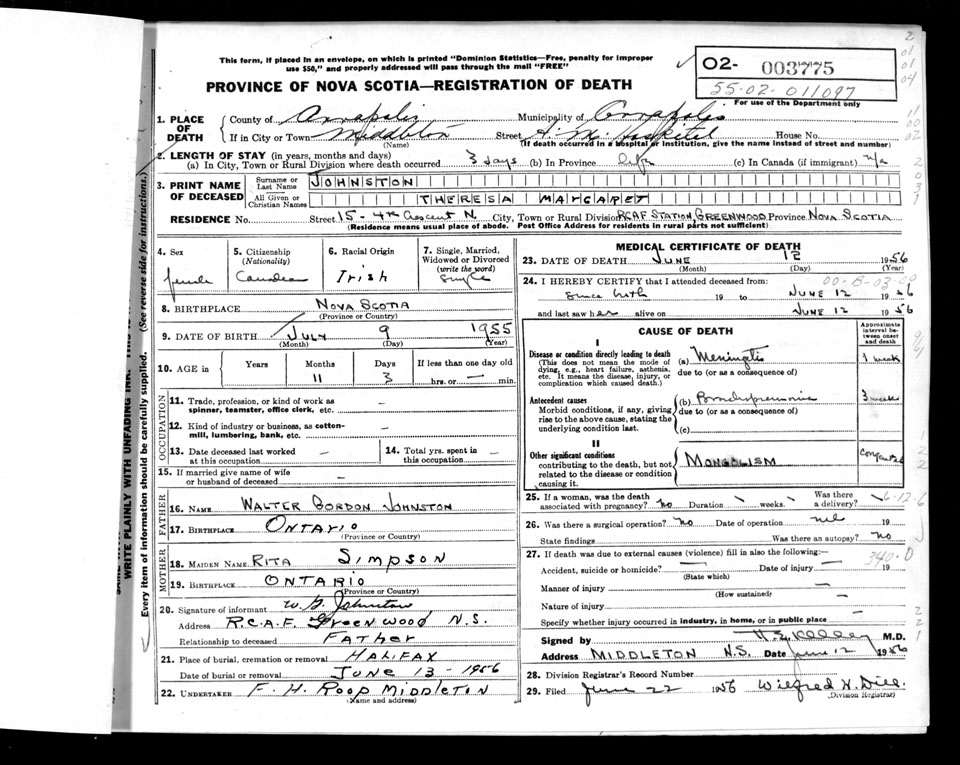 This form, if placed in an envelope, on which is printed "Dominion Statistics—Free, penalty for improper
use $50," and properly addressed will pass through the mail "FREE"
PROVINCE OF NOVA SCOTIA—REGISTRATION OF DEATH
02- 003775
55-02-011097
For use of the Department only
1. PLACE OF DEATH
County of Annapolis Municipality of Annapolis
If in City or Town Middleton Street House No.
(Name) (If death occurred in a hospital or institution, give the name instead of street and number)
2. LENGTH OF STAY (in years, months and days)
(a) In City, Town or Rural Division where death occurred 3 days (b) In Province Life (c) In Canada (if immigrant) n/a
3. PRINT NAME OF DECEASED
Surname or Last Name JOHNSTON
All Given or Christian Names THERESA MARGARET
RESIDENCE No. Street 15 - 4th Crescent N. City, Town or Rural Division RCAF STATION, GREENWOOD Province NOVA SCOTIA
(Residence means usual place of abode. Post Office Address for residents in rural parts not sufficient)
4. Sex female
5. Citizenship (Nationality) Canadian
6. Racial Origin Irish
7. Single, Married, Widowed or Divorced (write the word) Single
8. BIRTHPLACE NOVA SCOTIA
(Province or Country)
9. DATE OF BIRTH JULY 9 1955
(Month) (Day) (Year)
10. AGE in Years Months 11 Days 3 If less than one day old hrs. or — min.
OCCUPATION
11. Trade, profession, or kind of work as
spinner, teamster, office clerk, etc. —
12. Kind of industry or business, as cotton-
mill, lumbering, bank, etc. —
13. Date deceased last worked at this occupation —
14. Total yrs. spent in this occupation —
15. If married give name of wife
or husband of deceased —
FATHER
16. NAME WALTER GORDON JOHNSTON
17. BIRTHPLACE ONTARIO
(Province or Country)
MOTHER
18. MAIDEN NAME RITA SIMPSON
19. BIRTHPLACE ONTARIO
(Province or Country)
20. Signature of informant W. G. Johnston
Address R.C.A.F. GREENWOOD N.S.
Relationship to deceased FATHER
21. Place of burial, cremation or removal HALIFAX
Date of burial or removal JUNE 13 - 1956
22. UNDERTAKER F. H. ROOP MIDDLETON
(Name and address)
MEDICAL CERTIFICATE OF DEATH
23. DATE OF DEATH JUNE 12 1956
(Month) (Day) (Year)
24. I HEREBY CERTIFY that I attended deceased from:
since birth 19 to JUNE 12 1956
and last saw her alive on JUNE 12 1956
CAUSE OF DEATH
Approximate interval between onset and death
I
Disease or condition directly leading to death (a) Meningitis 1 week
(This does not mean the mode of dying, e.g., heart failure, asthenia, etc. It means the disease, injury, or complication which caused death.)
due to (or as a consequence of)
Antecedent causes (b) Bronchopneumonia 3 weeks
Morbid conditions, if any, giving rise to the above cause, stating the underlying condition last.
due to (or as a consequence of)
(c)
II
Other significant conditions MONGOLISM congenital
contributing to the death, but not related to the disease or condition causing it.
25. If a woman, was the death associated with pregnancy? No Duration weeks. Was there a delivery?
26. Was there a surgical operation? No Date of operation nil 19
State findings Was there an autopsy? No
27. If death was due to external causes (violence) fill in also the following:—
Accident, suicide or homicide? — Date of injury — 19
(State which)
Manner of injury —
(How sustained)
Nature of injury —
Specify whether injury occurred in industry, in home, or in public place
Signed by M.D.
Address MIDDLETON N.S. Date June 12 1956
28. Division Registrar's Record Number
29. Filed June 22 1956 Wilfred H. Dill.
(Division Registrar)
WRITE PLAINLY WITH UNFADING INK.
Every item of information should be carefully supplied. (See reverse side for instructions.)